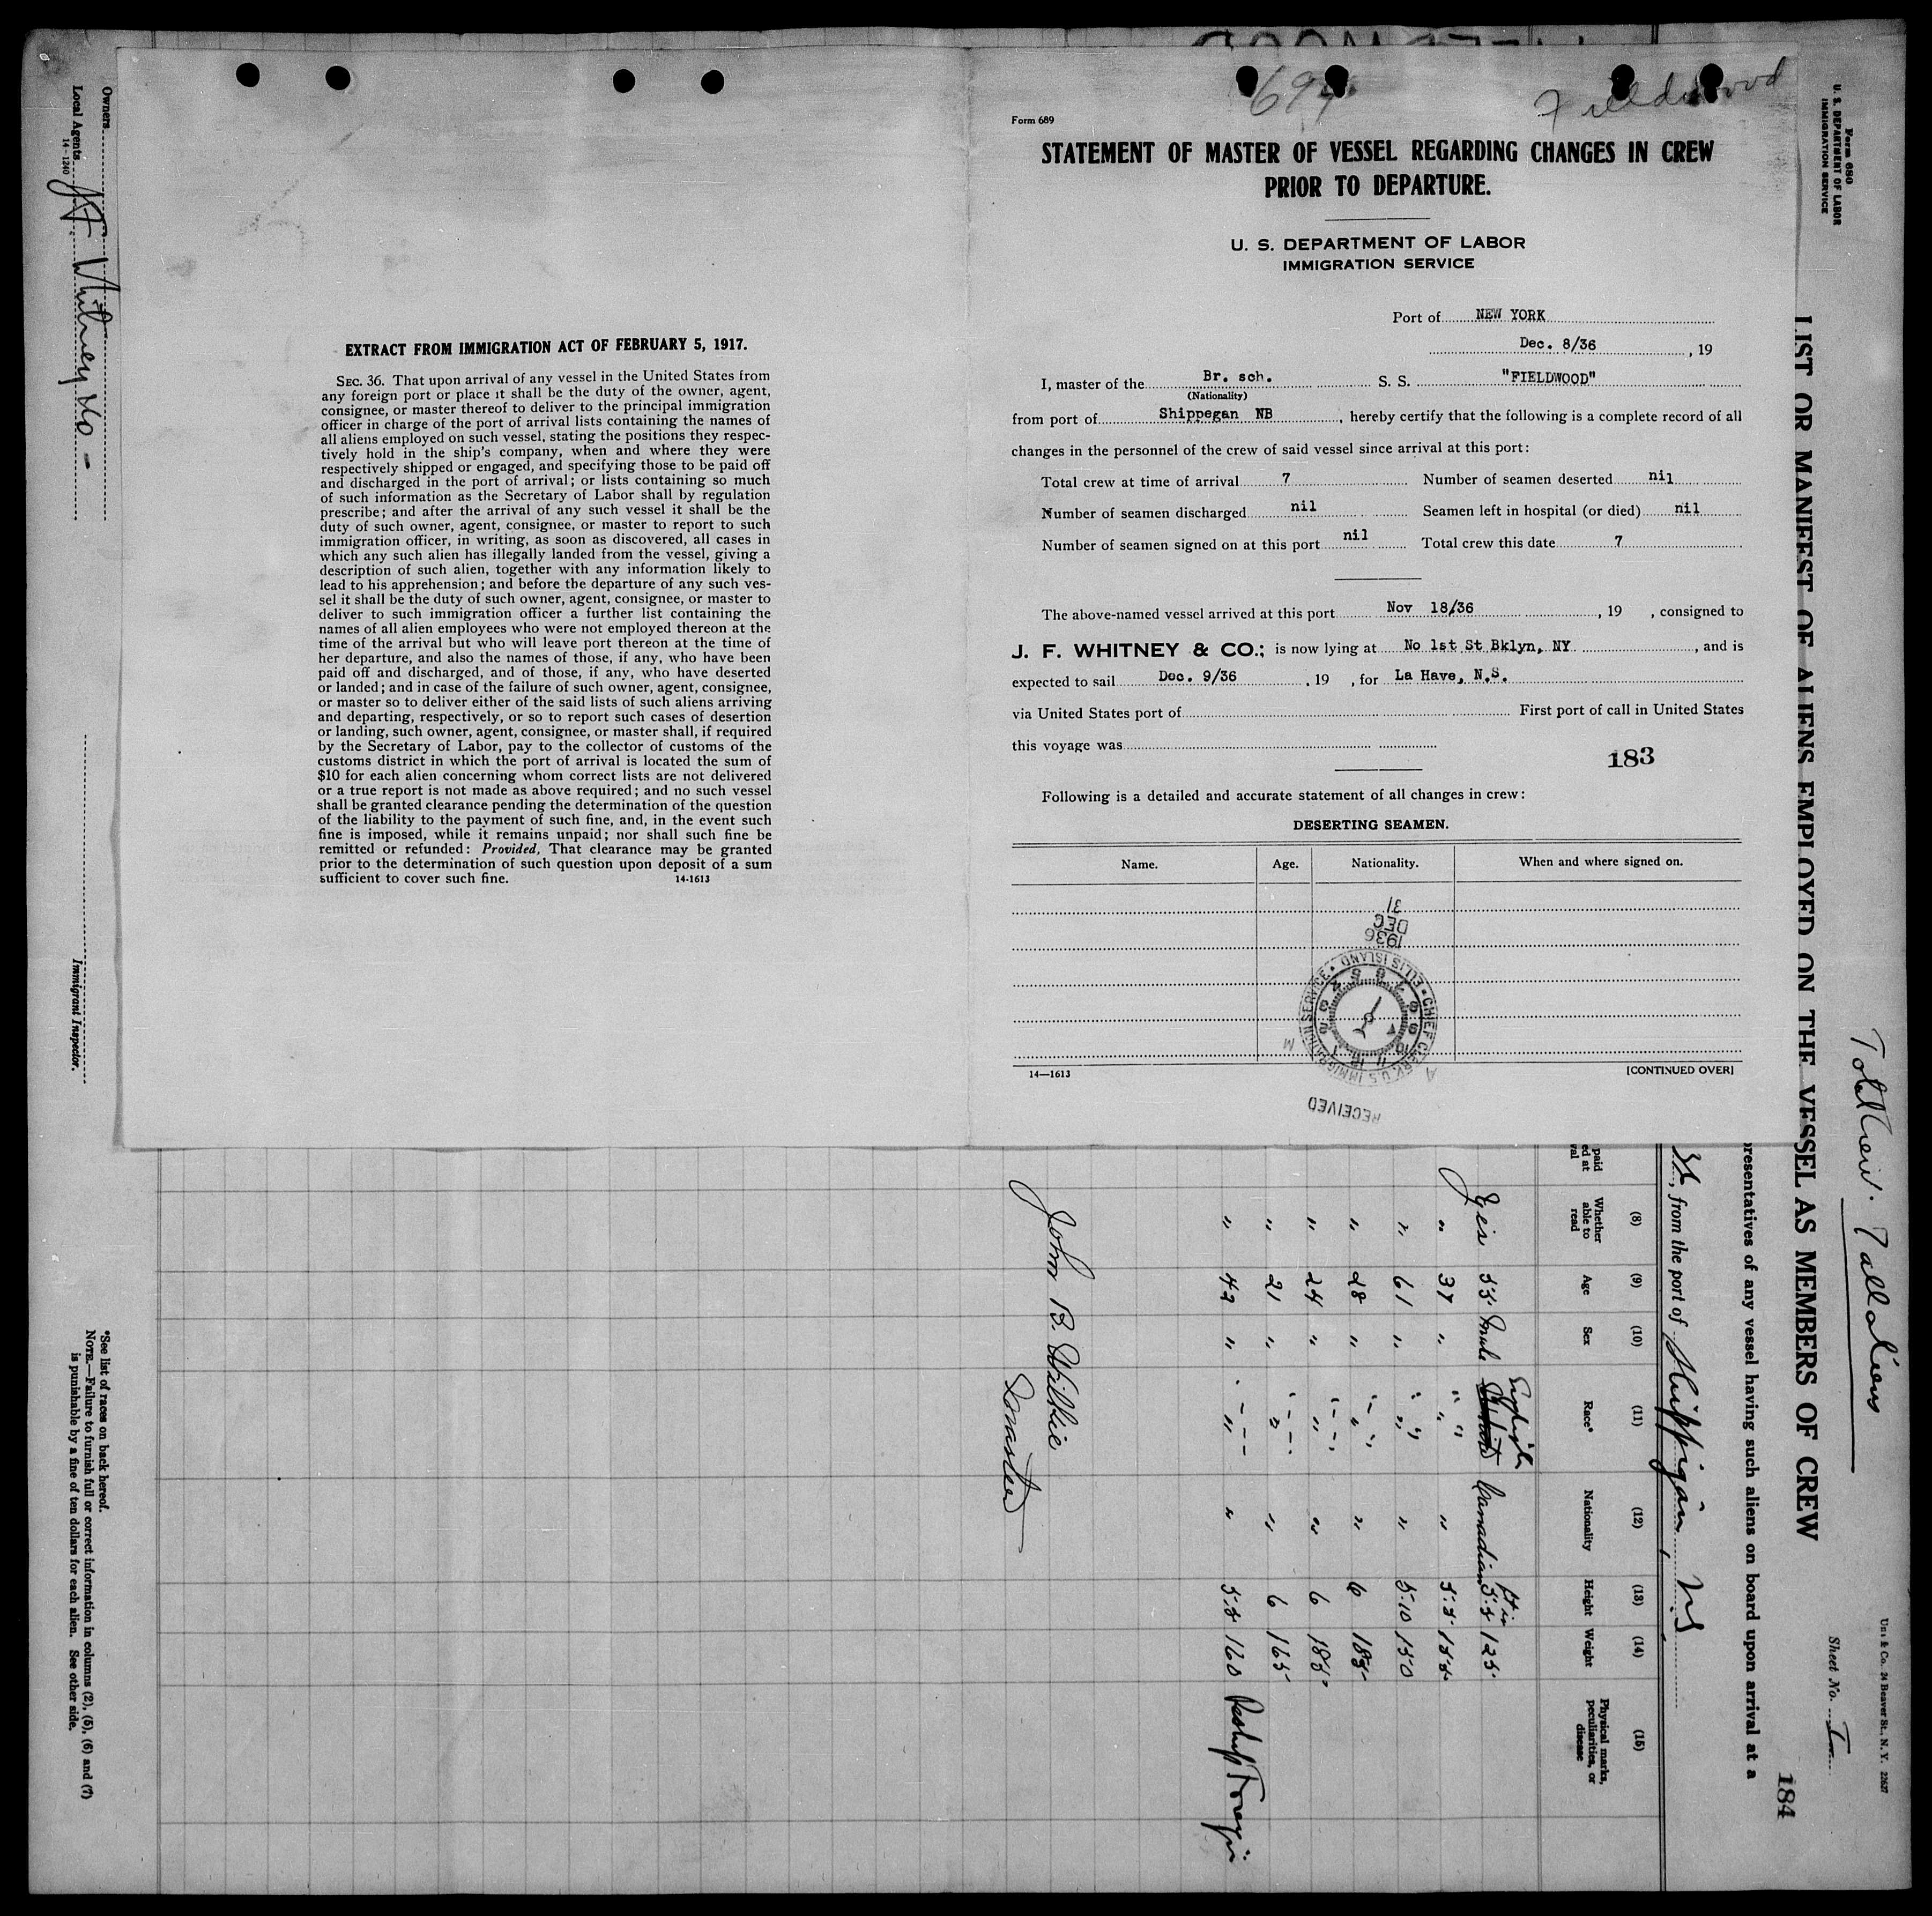 694
Fieldwood
Form 689
STATEMENT OF MASTER OF VESSEL REGARDING CHANGES IN CREW
PRIOR TO DEPARTURE.
U. S. DEPARTMENT OF LABOR
IMMIGRATION SERVICE
Port of NEW YORK
Dec. 8/36, 19
I, master of the Br. sch. S. S. "FIELDWOOD"
(Nationality)
from port of Shippegan NB, hereby certify that the following is a complete record of all
changes in the personnel of the crew of said vessel since arrival at this port:
Total crew at time of arrival 7 Number of seamen deserted nil
Number of seamen discharged nil Seamen left in hospital (or died) nil
Number of seamen signed on at this port nil Total crew this date 7
The above-named vessel arrived at this port Nov 18/36, 19 , consigned to
J. F. WHITNEY & CO.; is now lying at No 1st St Bklyn, NY, and is
expected to sail Dec. 9/36, 19 , for La Have, N.S.
via United States port of First port of call in United States
this voyage was
183
Following is a detailed and accurate statement of all changes in crew:
DESERTING SEAMEN.
Name. Age. Nationality. When and where signed on.
31
DEC
1936
CHIEF CLERK, U.S. IMMIGRATION SERVICE • ELLIS ISLAND •
A M
RECEIVED
14—1613 [CONTINUED OVER]
EXTRACT FROM IMMIGRATION ACT OF FEBRUARY 5, 1917.
SEC. 36. That upon arrival of any vessel in the United States from
any foreign port or place it shall be the duty of the owner, agent,
consignee, or master thereof to deliver to the principal immigration
officer in charge of the port of arrival lists containing the names of
all aliens employed on such vessel, stating the positions they respec-
tively hold in the ship's company, when and where they were
respectively shipped or engaged, and specifying those to be paid off
and discharged in the port of arrival; or lists containing so much
of such information as the Secretary of Labor shall by regulation
prescribe; and after the arrival of any such vessel it shall be the
duty of such owner, agent, consignee, or master to report to such
immigration officer, in writing, as soon as discovered, all cases in
which any such alien has illegally landed from the vessel, giving a
description of such alien, together with any information likely to
lead to his apprehension; and before the departure of any such ves-
sel it shall be the duty of such owner, agent, consignee, or master to
deliver to such immigration officer a further list containing the
names of all alien employees who were not employed thereon at the
time of the arrival but who will leave port thereon at the time of
her departure, and also the names of those, if any, who have been
paid off and discharged, and of those, if any, who have deserted
or landed; and in case of the failure of such owner, agent, consignee,
or master so to deliver either of the said lists of such aliens arriving
and departing, respectively, or so to report such cases of desertion
or landing, such owner, agent, consignee, or master shall, if required
by the Secretary of Labor, pay to the collector of customs of the
customs district in which the port of arrival is located the sum of
$10 for each alien concerning whom correct lists are not delivered
or a true report is not made as above required; and no such vessel
shall be granted clearance pending the determination of the question
of the liability to the payment of such fine, and, in the event such
fine is imposed, while it remains unpaid; nor shall such fine be
remitted or refunded: Provided, That clearance may be granted
prior to the determination of such question upon deposit of a sum
sufficient to cover such fine. 14-1613
Form 680
U. S. DEPARTMENT OF LABOR
IMMIGRATION SERVICE
LIST OR MANIFEST OF ALIENS EMPLOYED ON THE VESSEL AS MEMBERS OF CREW
Sheet No. I
184
presentatives of any vessel having such aliens on board upon arrival at a
, from the port of Shippigan, NB
(8) (9) (10) (11) (12) (13) (14) (15)
Whether able to read Age Sex Race* Nationality Height Weight Physical marks, peculiarities, or disease
Yes 55 male English Canadian 5.5 125
" 37 " " " 5.5 155
" 61 " " " 5.10 150
" 28 " " " 6 185
" 24 " " " 6 185
" 21 " " " 6 165
" 42 " " " 5.8 160
John B. Wilkie
Owners
Local Agents J F Whitney & Co -
14-1240
Immigrant Inspector.
*See list of races on back hereof.
NOTE.—Failure to furnish full or correct information in columns (2), (5), (6) and (7)
is punishable by a fine of ten dollars for each alien. See other side.